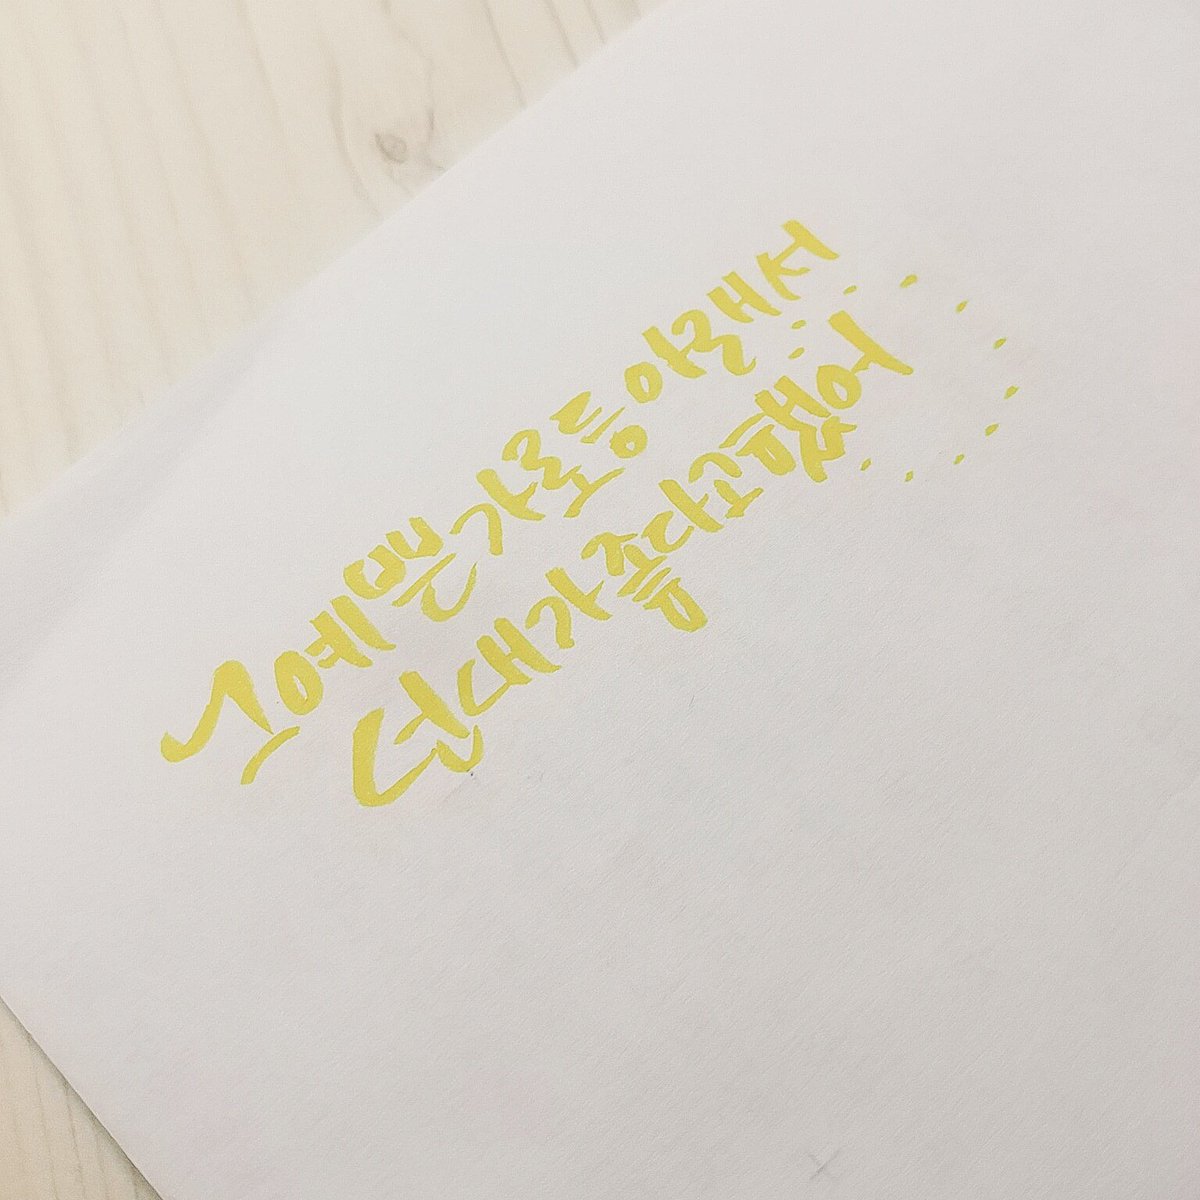 그 예쁜 가로등 아래서
넌 내가 좋다고 했어